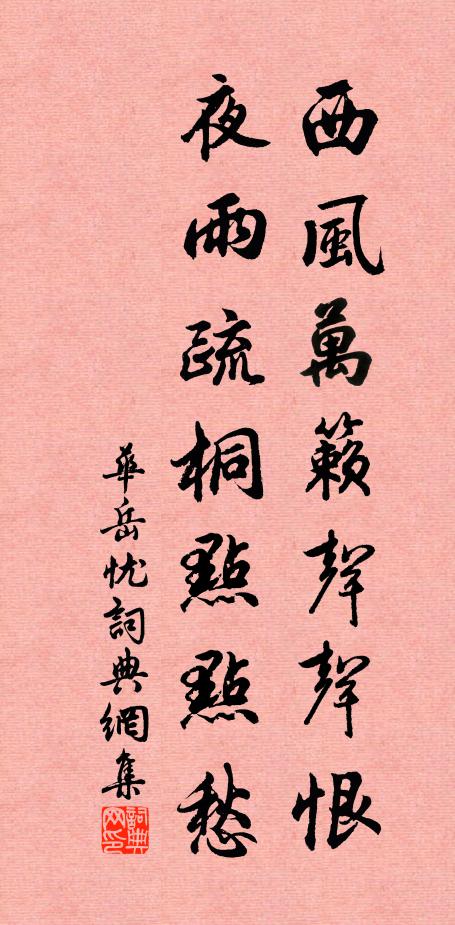 西風萬籟聲聲恨
夜雨疏桐點點愁
華岳忧詞典網集
詞典网印